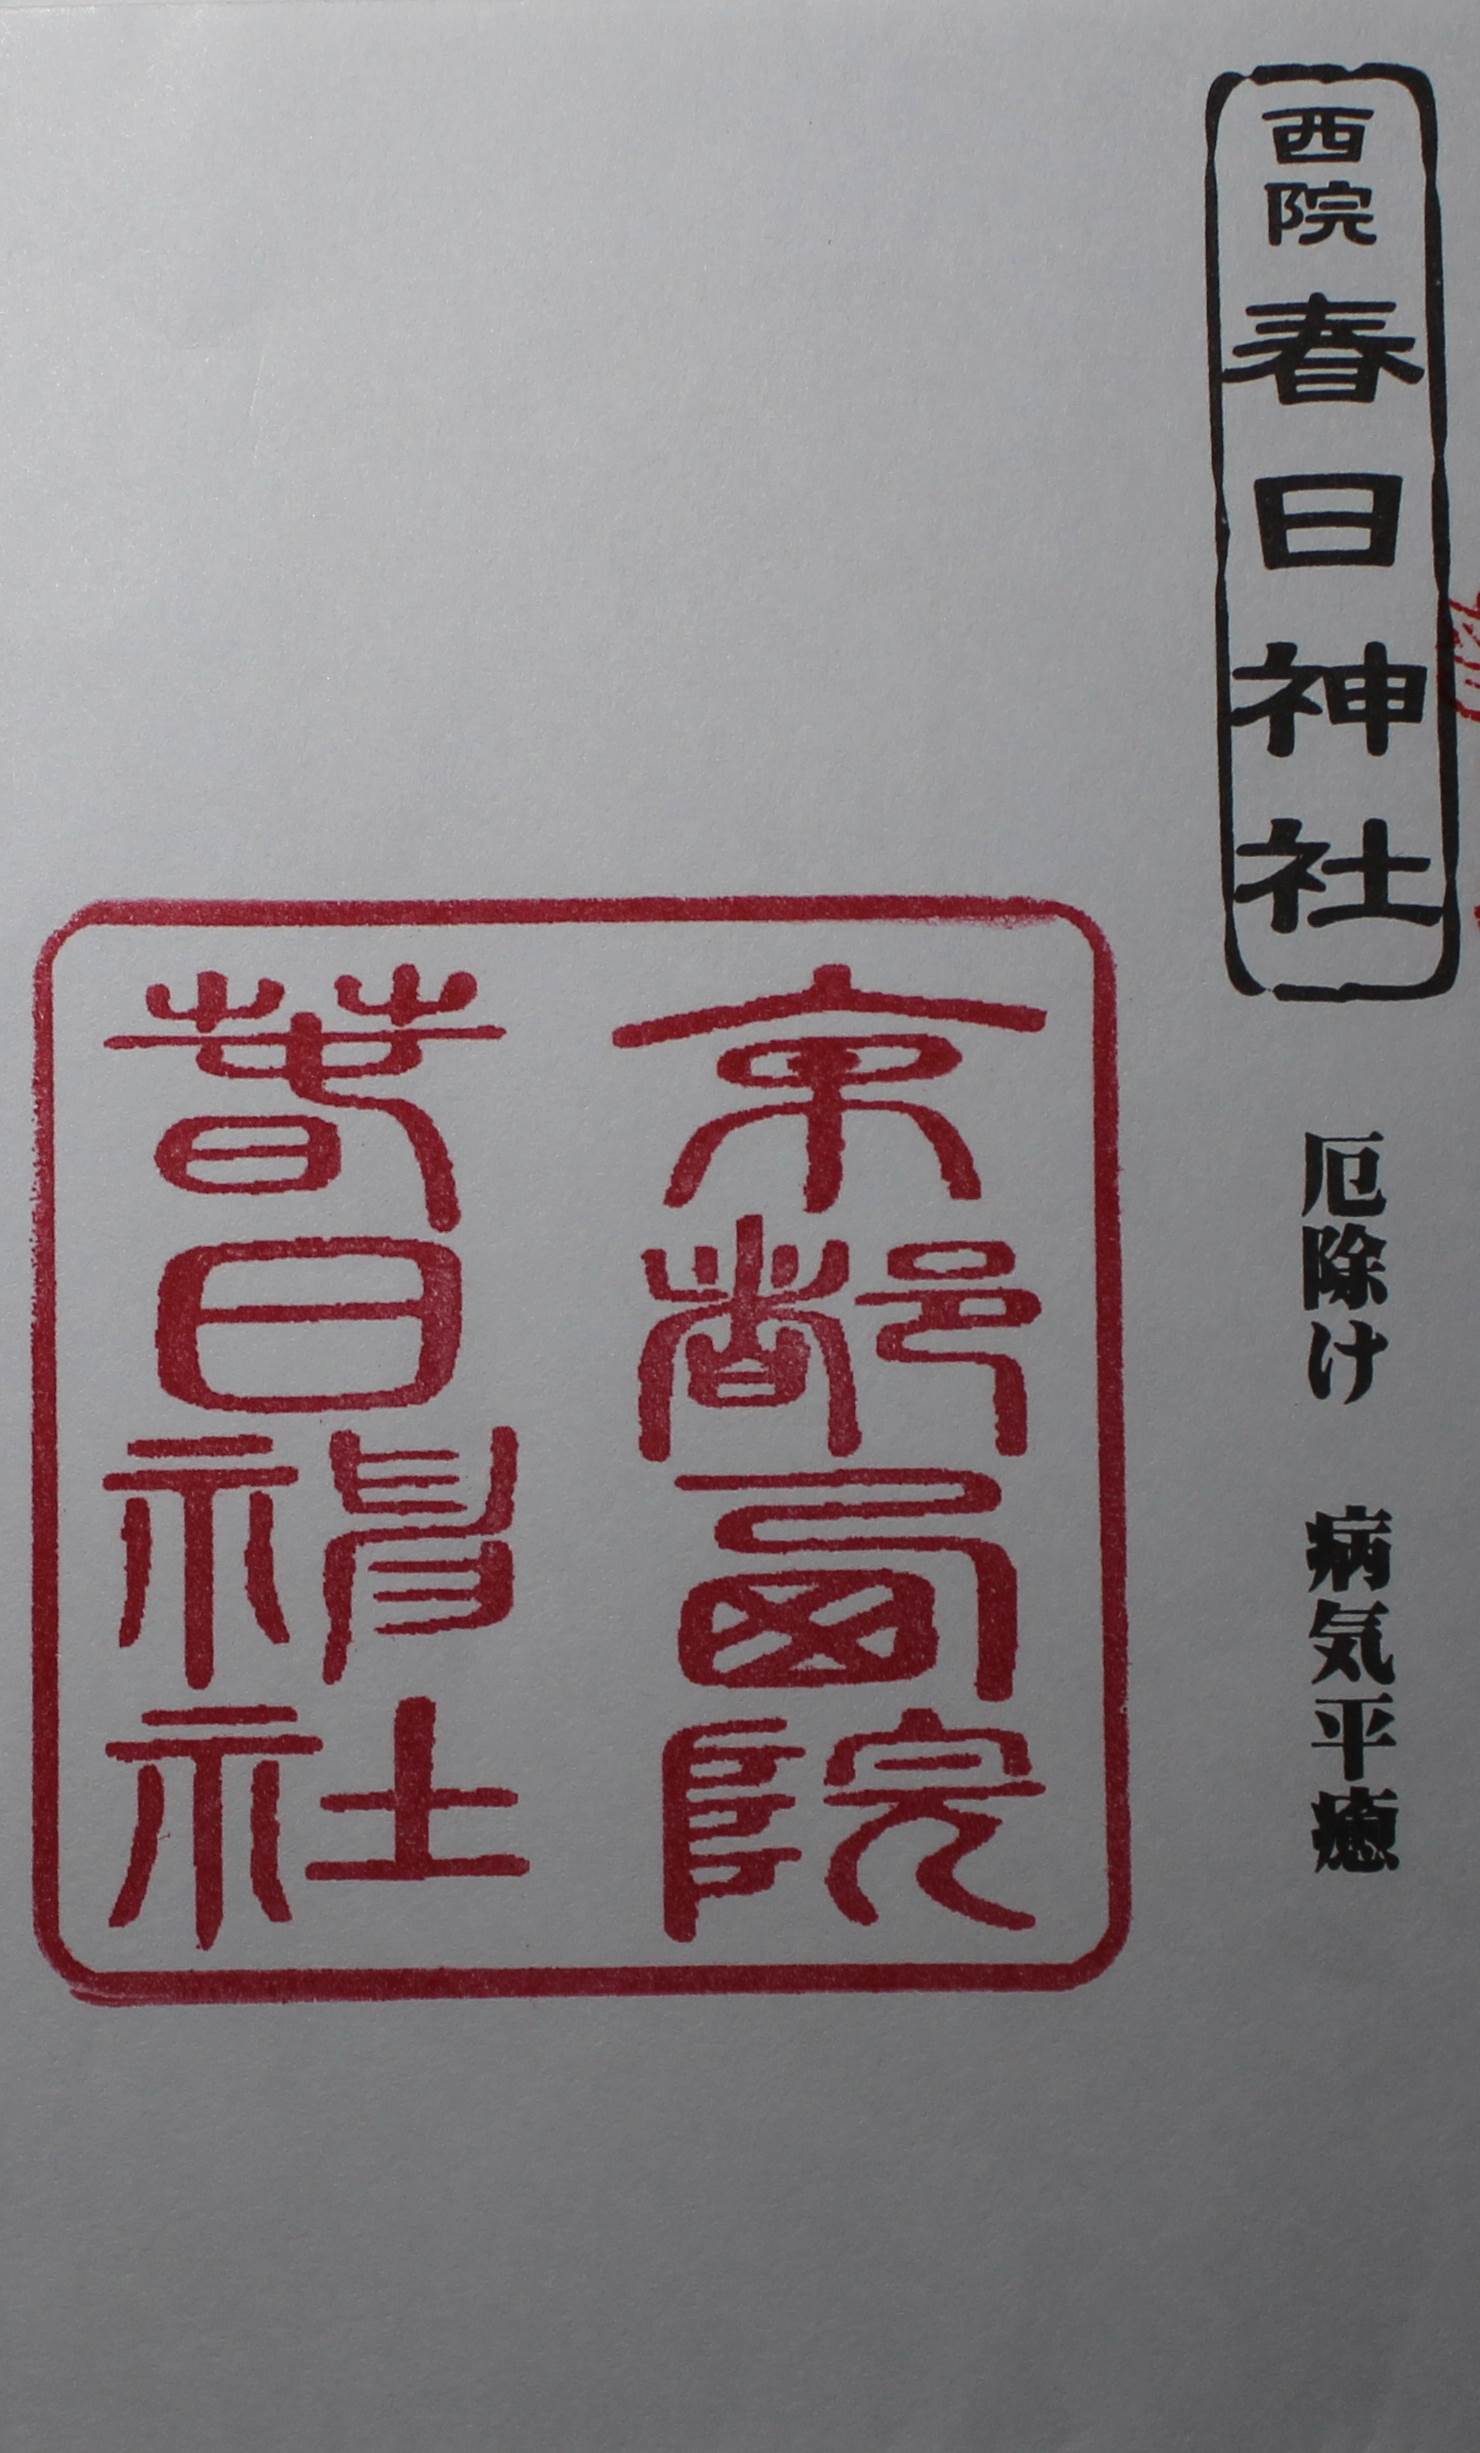 西院春日神社
厄除け　病気平癒
京都西院
春日神社